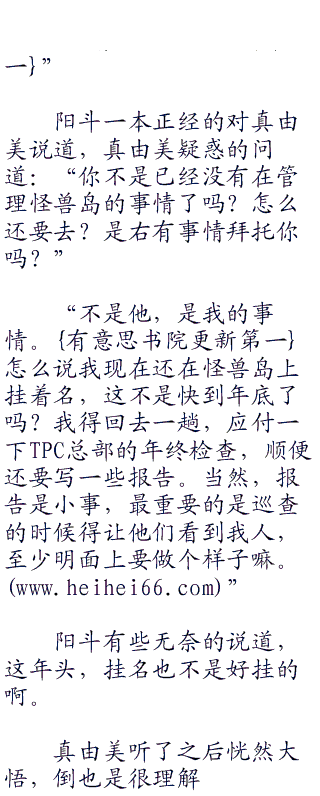 一}”
阳斗一本正经的对真由
美说道，真由美疑惑的问
道：“你不是已经没有在管
理怪兽岛的事情了吗？怎么
还要去？是右有事情拜托你
吗？”
“不是他，是我的事
情。{有意思书院更新第一}
怎么说我现在还在怪兽岛上
挂着名，这不是快到年底了
吗？我得回去一趟，应付一
下TPC总部的年终检查，顺便
还要写一些报告。当然，报
告是小事，最重要的是巡查
的时候得让他们看到我人，
至少明面上要做个样子嘛。
(www.heihei66.com)”
阳斗有些无奈的说道，
这年头，挂名也不是好挂的
啊。
真由美听了之后恍然大
悟，倒也是很理解